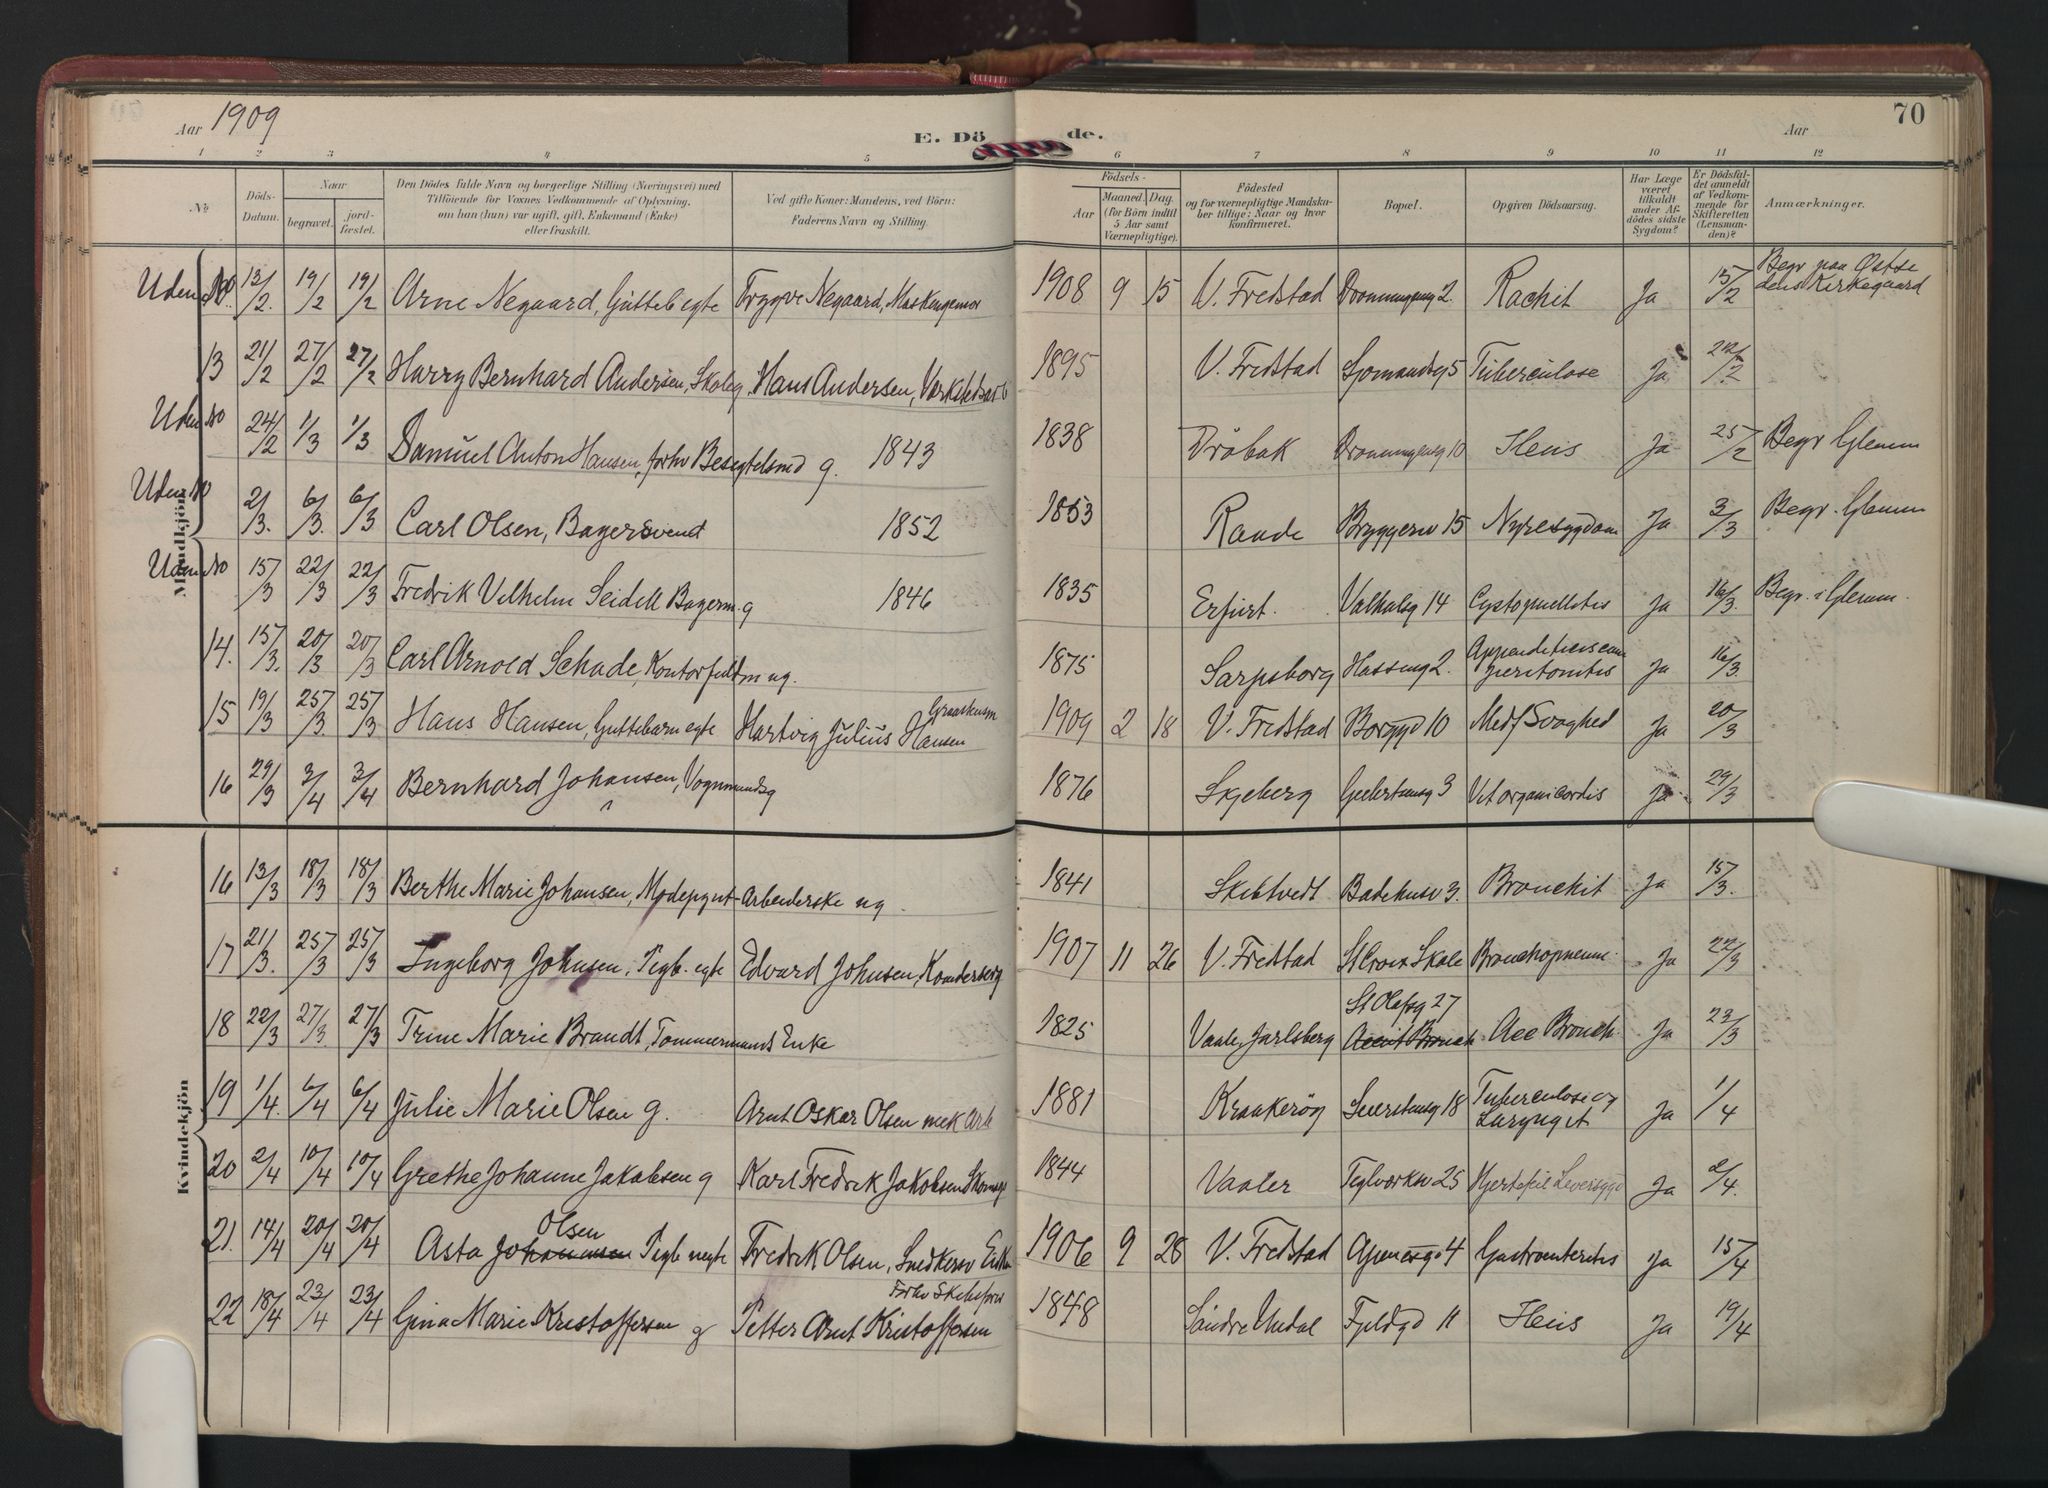 Aar 1909 E. Dö de. Aar 70
1 2 3 4 5 6 7 8 9 10 11 12
No Döds-Datum. Naar begravet. jordfæstet. Den Dödes fulde Navn og borgerlige Stilling (Næringsvei) med Tilföiende for Voxnes Vedkommende af Oplysning, om han (hun) var ugift, gift, Enkemand (Enke) eller fraskilt. Ved gifte Koner: Mandens, ved Börn: Faderens Navn og Stilling. Födsels- Aar Maaned. Dag. (for Börn indtil 5 Aar samt Værnepligtige). Födested og for værnepligtige Mandskaber tillige: Naar og hvor konfirmeret. Bopæl. Opgiven Dödsaarsag. Har Læge været tilkaldt under Afdödes sidste Sygdom? Er Dödsfaldet anmeldt af Vedkommende for Skifteretten (Lensmanden)? Anmærkninger.
Mandkjön
Uden No 13/2. 19/2 19/2 Arne Negaard, Gutteb egte Trygve Negaard, Maskingemor 1908 9 15 V. Fredstad Dronningensg 2. Rachit Ja 15/2 Begr paa Østsidens Kirkegaard
13 21/2 27/2 27/2 Harry Bernhard Andersen, Skoleg. Hans Andersen, Værkstedsarb 1895 V. Fredstad Sjomandsg 5 Tuberculose Ja 22/2
Uden No 24/2 1/3 1/3 Samuel Anton Hansen, forhv Beseglelsmd g. 1843 1838 Dröbak Dronningensg 10 Ileus Ja 25/2 Begr Glemm
Uden No 2/3. 6/3. 6/3 Carl Olsen, Bagersvend 1852 1853 Raade Bryggeriv 15 Nyresygdom Ja 3/3 Begr. Glemm
Uden No 15/3 22/3 22/3 Fredrik Vilhelm Seidell Bagerm. g 1846 1835 Erfurt. Valhalsg 14 Cystopyelitis Ja 16/3. Begr. i Glemm.
14. 15/3. 20/3 20/3 Carl Arnold Schade, Kontorfuldm ug. 1875 Sarpsborg Hassingg 2. Appendicitis cum peritonitis Ja 16/3.
15 19/3 25/3. 25/3 Hans Hansen, Guttebarn egte Hartvig Julius Hansen Graashusm 1909 2 18 V. Fredstad Borggd 10 Medf Svaghed Ja 20/3
16 29/3 3/4 3/4 Bernhard Johansen, Vognmand g 1876 Skjeberg Geelertsensg 3 Vit organi cordis Ja 29/3
Kvindekjön
16 13/3 18/3 18/3 Berthe Marie Johansen, Modepynt-Arbeiderske ug. 1841 Skibtvedt Badehusv 3. Bronchit Ja 15/3.
17 21/3. 25/3 25/3 Ingeborg Johnsen, Pigb. egte Edvard Johnsen, Konderserg 1907 11 26 V. Fredstad St Croix Skole Bronchopneum. Ja 22/3
18 22/3 27/3 27/3 Trine Marie Brandt, Tommermands Enke 1825 Vaale, Jarlsberg St Olafsg 27 Acut Bronch Acc Bronch. Ja 23/3
19 1/4. 6/4 6/4 Julie Marie Olsen g. Arnt Oskar Olsen mek Arb 1881 Kraakerøy Seierstensg 18 Tuberculose og Laryngit Ja 1/4
20 2/4 10/4 10/4 Grethe Johanne Jakobsen g Karl Fredrik Jakobsen Skomag 1844 Vaaler Teglverksv 25 Hjertefeil Leversygd Ja 2/4.
21. 14/4 20/4 20/4 Asta Johannesen Olsen Pigb uegte Fredrik Olsen, Snedkersv Enkem 1906 9 28 V. Fredstad Apenesgd 4 Gastroenteritis Ja 15/4
22 18/4 23/4 23/4 Gina Marie Kristoffersen g Petter Arnt Kristoffersen Forhv Skibsfører 1848 Söndre Undal Fjeldgd 11 Ileus Ja 19/4